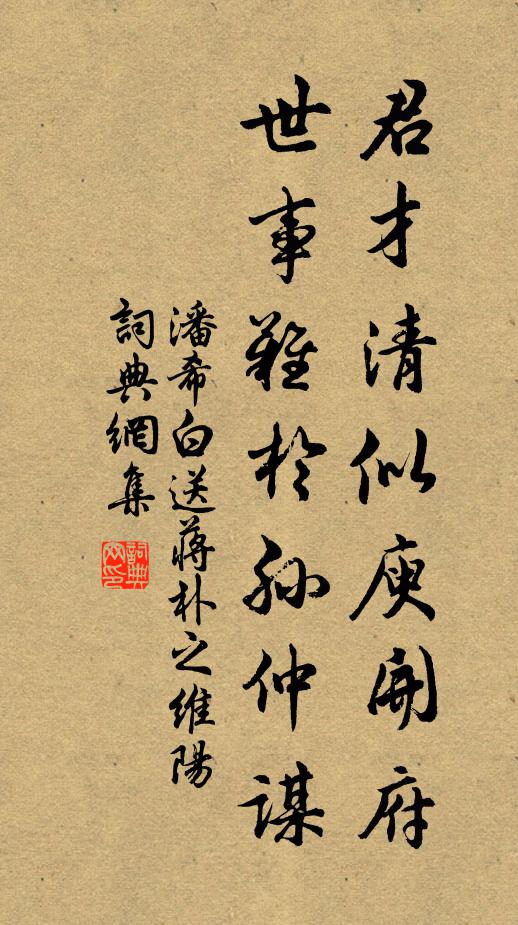 君才清似庾開府
世事難於孫仲謀
潘希白送蔣朴之維陽
詞典網集
詞典網印